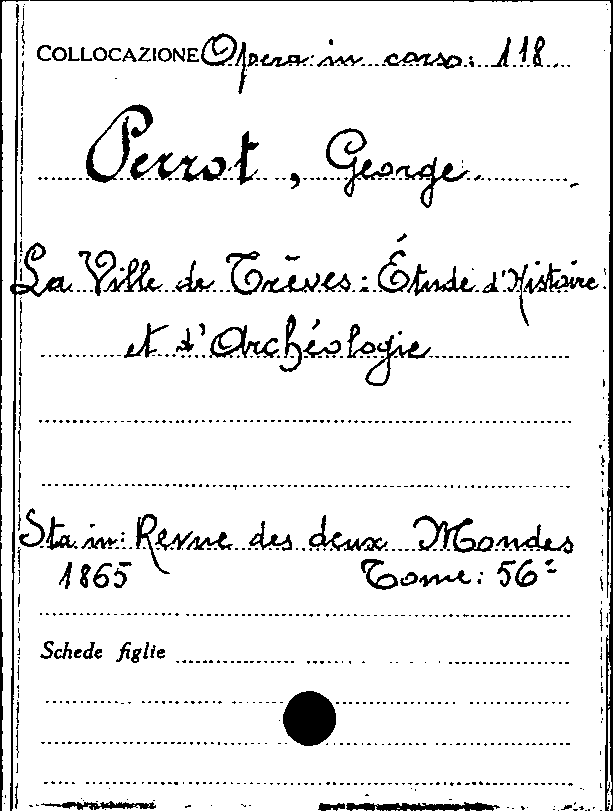 COLLOCAZIONE Opera in corso: 118
Perrot, George.
La Ville de Trèves: Étude d'Histoire
et d'Archéologie
Sta in: Revue des deux Mondes
1865 Tome: 56=
Schede figlie